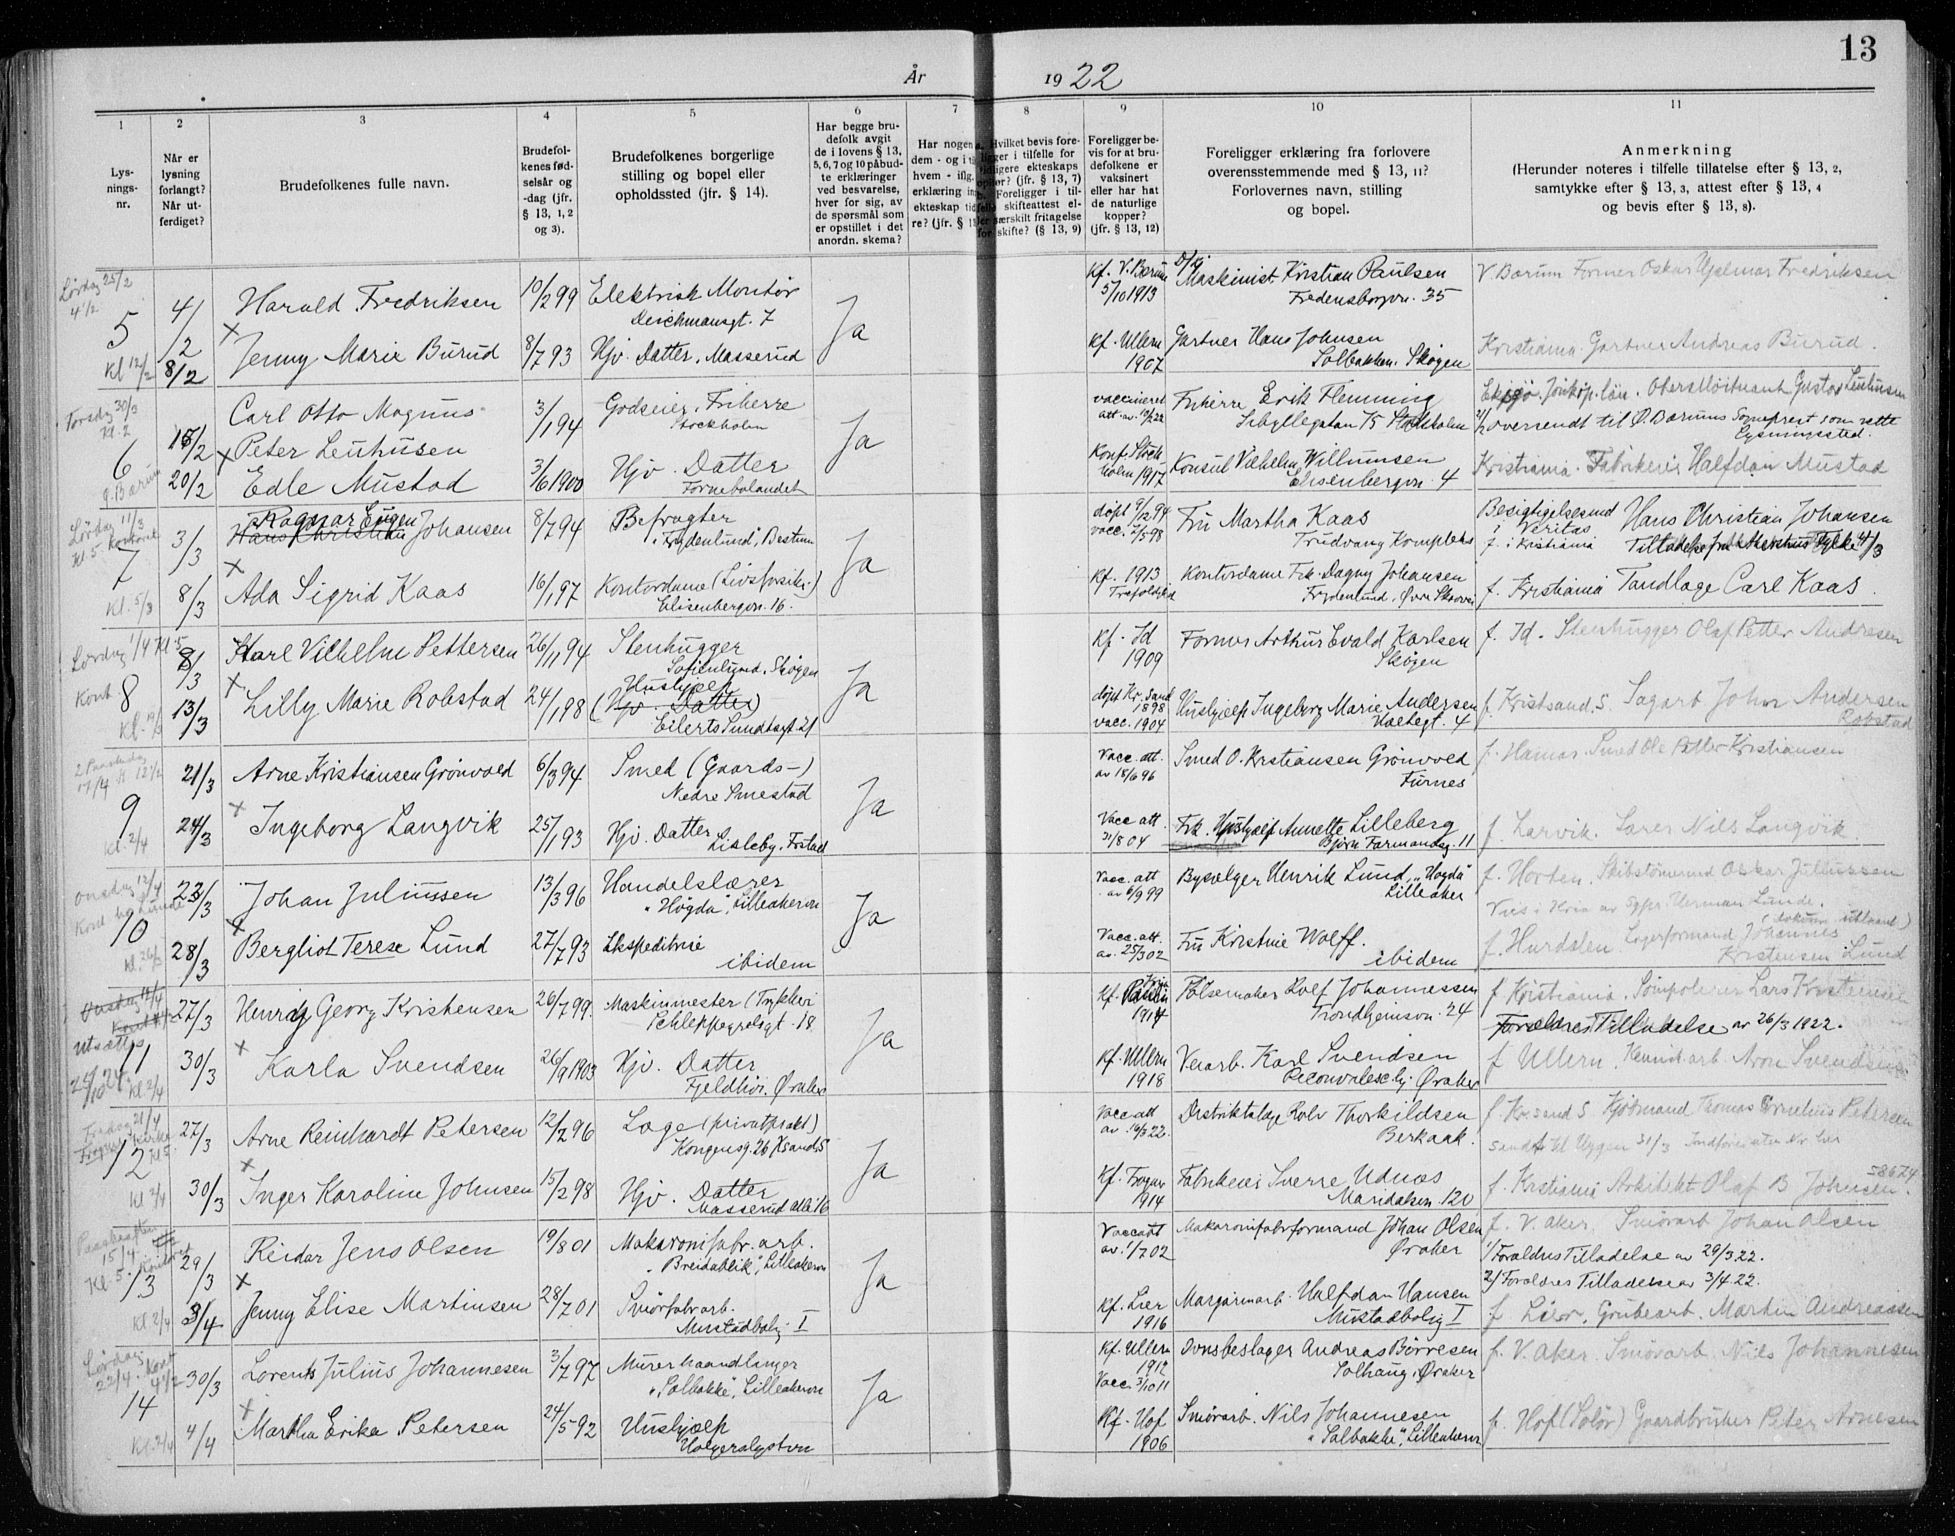 13
År 1922
1 2 3 4 5 6 7 8 9 10 11
Lys-
nings-
nr.
Når er
lysning
forlangt?
Når ut-
ferdiget?
Brudefolkenes fulle navn.
Brudefol-
kenes fød-
selsår og
-dag (jfr.
§ 13, 1, 2
og 3).
Brudefolkenes borgerlige
stilling og bopel eller
opholdssted (jfr. § 14).
Har begge bru-
defolk avgit
de i lovens § 13,
5, 6, 7 og 10 påbud-
te erklæringer
ved besvarelse,
hver for sig, av
de spørsmål som
er opstillet i det
anordn. skema?
Har nogen
dem - og i
hvem - iflg.
erklæring
ekteskap tid
re? (jfr. §
Hvilket bevis fore-
ligger i tilfelle for
tidligere ekteskaps
(jfr. § 13, 7)
Foreligger i til-
felle skifteattest el-
ler særskilt fritagelse
for skifte? (§ 13, 9)
Foreligger be-
vis for at bru-
defolkene er
vaksinert
eller har hat
de naturlige
kopper?
(jfr. § 13, 12)
Foreligger erklæring fra forlovere
overensstemmende med § 13, 11?
Forlovernes navn, stilling
og bopel.
Anmerkning
(Herunder noteres i tilfelle tillatelse efter § 13, 2,
samtykke efter § 13, 3, attest efter § 13, 4
og bevis efter § 13, 8).
Lørdag 25/2
4 1/2
5 4/2 Harald Fredriksen 10/2 99 Elektrisk Montør
Deichmansgt. 7
Ja
Kf. V. Bærum
5/10 1913
Maskinist Kristian Paulsen
Fredensborgvn. 35
V Bærum Former Oskar Hjalmar Fredriksen
Kl 12/2 8/2 x Jenny Marie Burud 8/7 93 Hjv. Datter, Masserud
Kf. Ullern
1907
Gartner Hans Johnsen
Solbakken. Skøgen
Kristiania. Gartner Andreas Burud.
Torsdag 30/3
Kl. 2
6 15/2 Carl Otto Magnus
Peter Leuhusen
3/1 94 Godseier, Friherre
Stockholm
Ja
vaccineret
Friherre Erik Flemming
Sibyllegatan 75 Stockholm
Eksjø. Jönköp. län. Oberstløitnant Gustav Leuhusen
oversendt til Ø. Bærums Sogneprest som rette
Lysningssted.
20/2 x Edle Mustad 3/6 1900 Hjv. Datter
Fornebolandet
Konf. Stock
holm 1917
Konsul Vilhelm Willumsen
Elisenbergvn. 4
Kristiania. Fabrikeier Halfdan Mustad
Lørdag 11/3
Kl 5 Kontoret
7 3/3 Ragnar Eugen
Hans Christian Johansen 8/7 94 Befragter
"Frydenlund", Bestum
Ja
døpt 9/12 94
vacc. 2/5 98
Fru Martha Kaas
Trudvang Kompleks
Besigtigelsesmd
i Veritas Hans Christian Johansen
f. i Kristiania Tilladelse fra Akershus Fylke 4/3
Kl. 5/3 8/3 x Ada Sigrid Kaas 16/1 97 Kontordame (Livsforsikr.)
Elisenbergvn. 16.
Kf. 1913
Kontordame Frk. Dagny Johansen
Frydenlund, Øvre Skøyen
f. Kristiania Tandlæge Carl Kaas
Lørdag 1/4 Kl 5
Kont.
8 8/3 Karl Vilhelm Pettersen 26/1 94 Stenhugger
Sofienlund, Skøgen
Ja
Kf. Id
1909
Former Arthur Evald Karlsen
Skøgen
f. Id. Stenhugger Olaf Petter Andresen
13/3 x Lilly Marie Robstad 24/1 98 Hushjelp
(Hjv. Datter)
Eilerts Sundtsgt 21
døpt Kr. Sand
1898
vacc. 1904
Hushjælp Ingeborg Marie Andersen
f. Kristsand. S. Sagarb John Andersen
Robstad
9 21/3 Arne Kristiansen Grønvold 6/3 94 Smed (Gaards-)
Nedre Smestad
Ja
Vacc. att.
av 18/6 96
Smed O. Kristiansen Grönvold
Furnes
f. Hamar. Smed Ole Petter Kristiansen
Kl. 2/4 24/3 x Ingeborg Langvik 25/1 93 Hjv. Datter
Lisleby, Frstad
Vacc att.
31/8 04
Frk. Hushjælp Annette Lilleberg
Bjørn Farmandsg. 11
f. Larvik. Lærer Nils Langvik
Onsdag 12/4
10 23/3 Johan Juliussen 13/3 96 Handelslærer
"Høgda", Lilleakervn
Ja
Vacc. att
av 6/9 99
Bysælger Henrik Lund, "Høgda"
Lilleaker
f. Horten. Skibstømermd Oskar Juliussen
Vies i Hvia av Sgpr. Herman Lunde.
Kl. 26/3 28/3 x Bergliot Terese Lund 27/7 93 Ekspeditrise
ibidem
Vacc. att.
av. 25/3 02
Fru Kristine Wolff.
ibidem
f. Hurdalen Lagerformand Johannes
Kristensen Lund
Onsdag 12/4
utsættes
11 27/3 Henrdy Georg Kristensen 26/7 99. Maskinmester (Trykkeri
Schleppegrelsgt. 18
Ja
1914
Pølsemaker Rolf Johannessen
Trondhjemsvn. 24
f Kristiania. Lars Kristensen
Forældres Tilladelse av 26/3 1922.
Kl 2/4 30/3 x Karla Svendsen 26/9 1903 Hjv. Datter
Fjeldhöi, Øraker
Kf. Ullern
1918
Veiarb. Karl Svendsen
Øraker
f Ullern. Kemisk arb. Arn Svendsen
Fredag 21/4
12 27/3 Arne Reinhardt Petersen 12/2 96 Læge (privatprakt)
Kongensg. 26 KsandS
Ja
Vacc att
av 16/3 22.
Distriktslæge Rolv Thorkildsen
Berkaak.
f. Kr. sand S Kjøbmand Thomas Cornelius Petersen
Kl 2/4 30/3 x Inger Karoline Johnsen 15/2 98 Hjv. Datter
Masserud allé 16
Kf. Frogner
1914
Fabrikeier Sverre Udnæs
Maridalsvn. 120
58674
f. Kristiania Arkitekt Olaf B Johnsen.
Paaskeaften
15/4
Kl 5. Kontoret
13 29/3 Reidar Jens Olsen 19/8 01 Makaronifabr. arb.
"Breidablik", Lilleakervn
Ja
Vacc att
av. 1/7 02
Makaronifabrformand Johan Olsen
Øraker
f. V. Aker. Smörarb Johan Olsen
1/ Forældres Tilladelse av 29/3 22.
2/ Forældres Tilladelse av 3/4 22.
Kl 2/4 3/4 x Jenny Elise Martinsen 28/7 01 Smörfabr arb.
Mustadbolig I
Kf. Lier
1916
Margarinarb. Halfdan Hansen
Mustadbolig I
f. Lier, Grubearb. Martin Andreassen
Lørdag
22/4. Kont
4 1/2
14 30/3 Lorents Julius Johannesen 3/7 97 Murerhaandlanger
"Solbakke", Lilleakervn
Ja
Kf. Ullern
1912
Vacc. 3/10 11
Ovnsbeslager Andreas Børresen
Solhaug, Øraker
f. V. Aker. Smörarb. Nils Johannesen
Kl. 2/4 4/4 x Martha Erika Petersen 24/5 92 Hushjælp
Holgerslystvn
Kf. Hof
1906
Smörarb. Nils Johannesen
"Solbakke", Lilleakervn
f. Hof (Solør) Gaardbruker Peter Arnesen